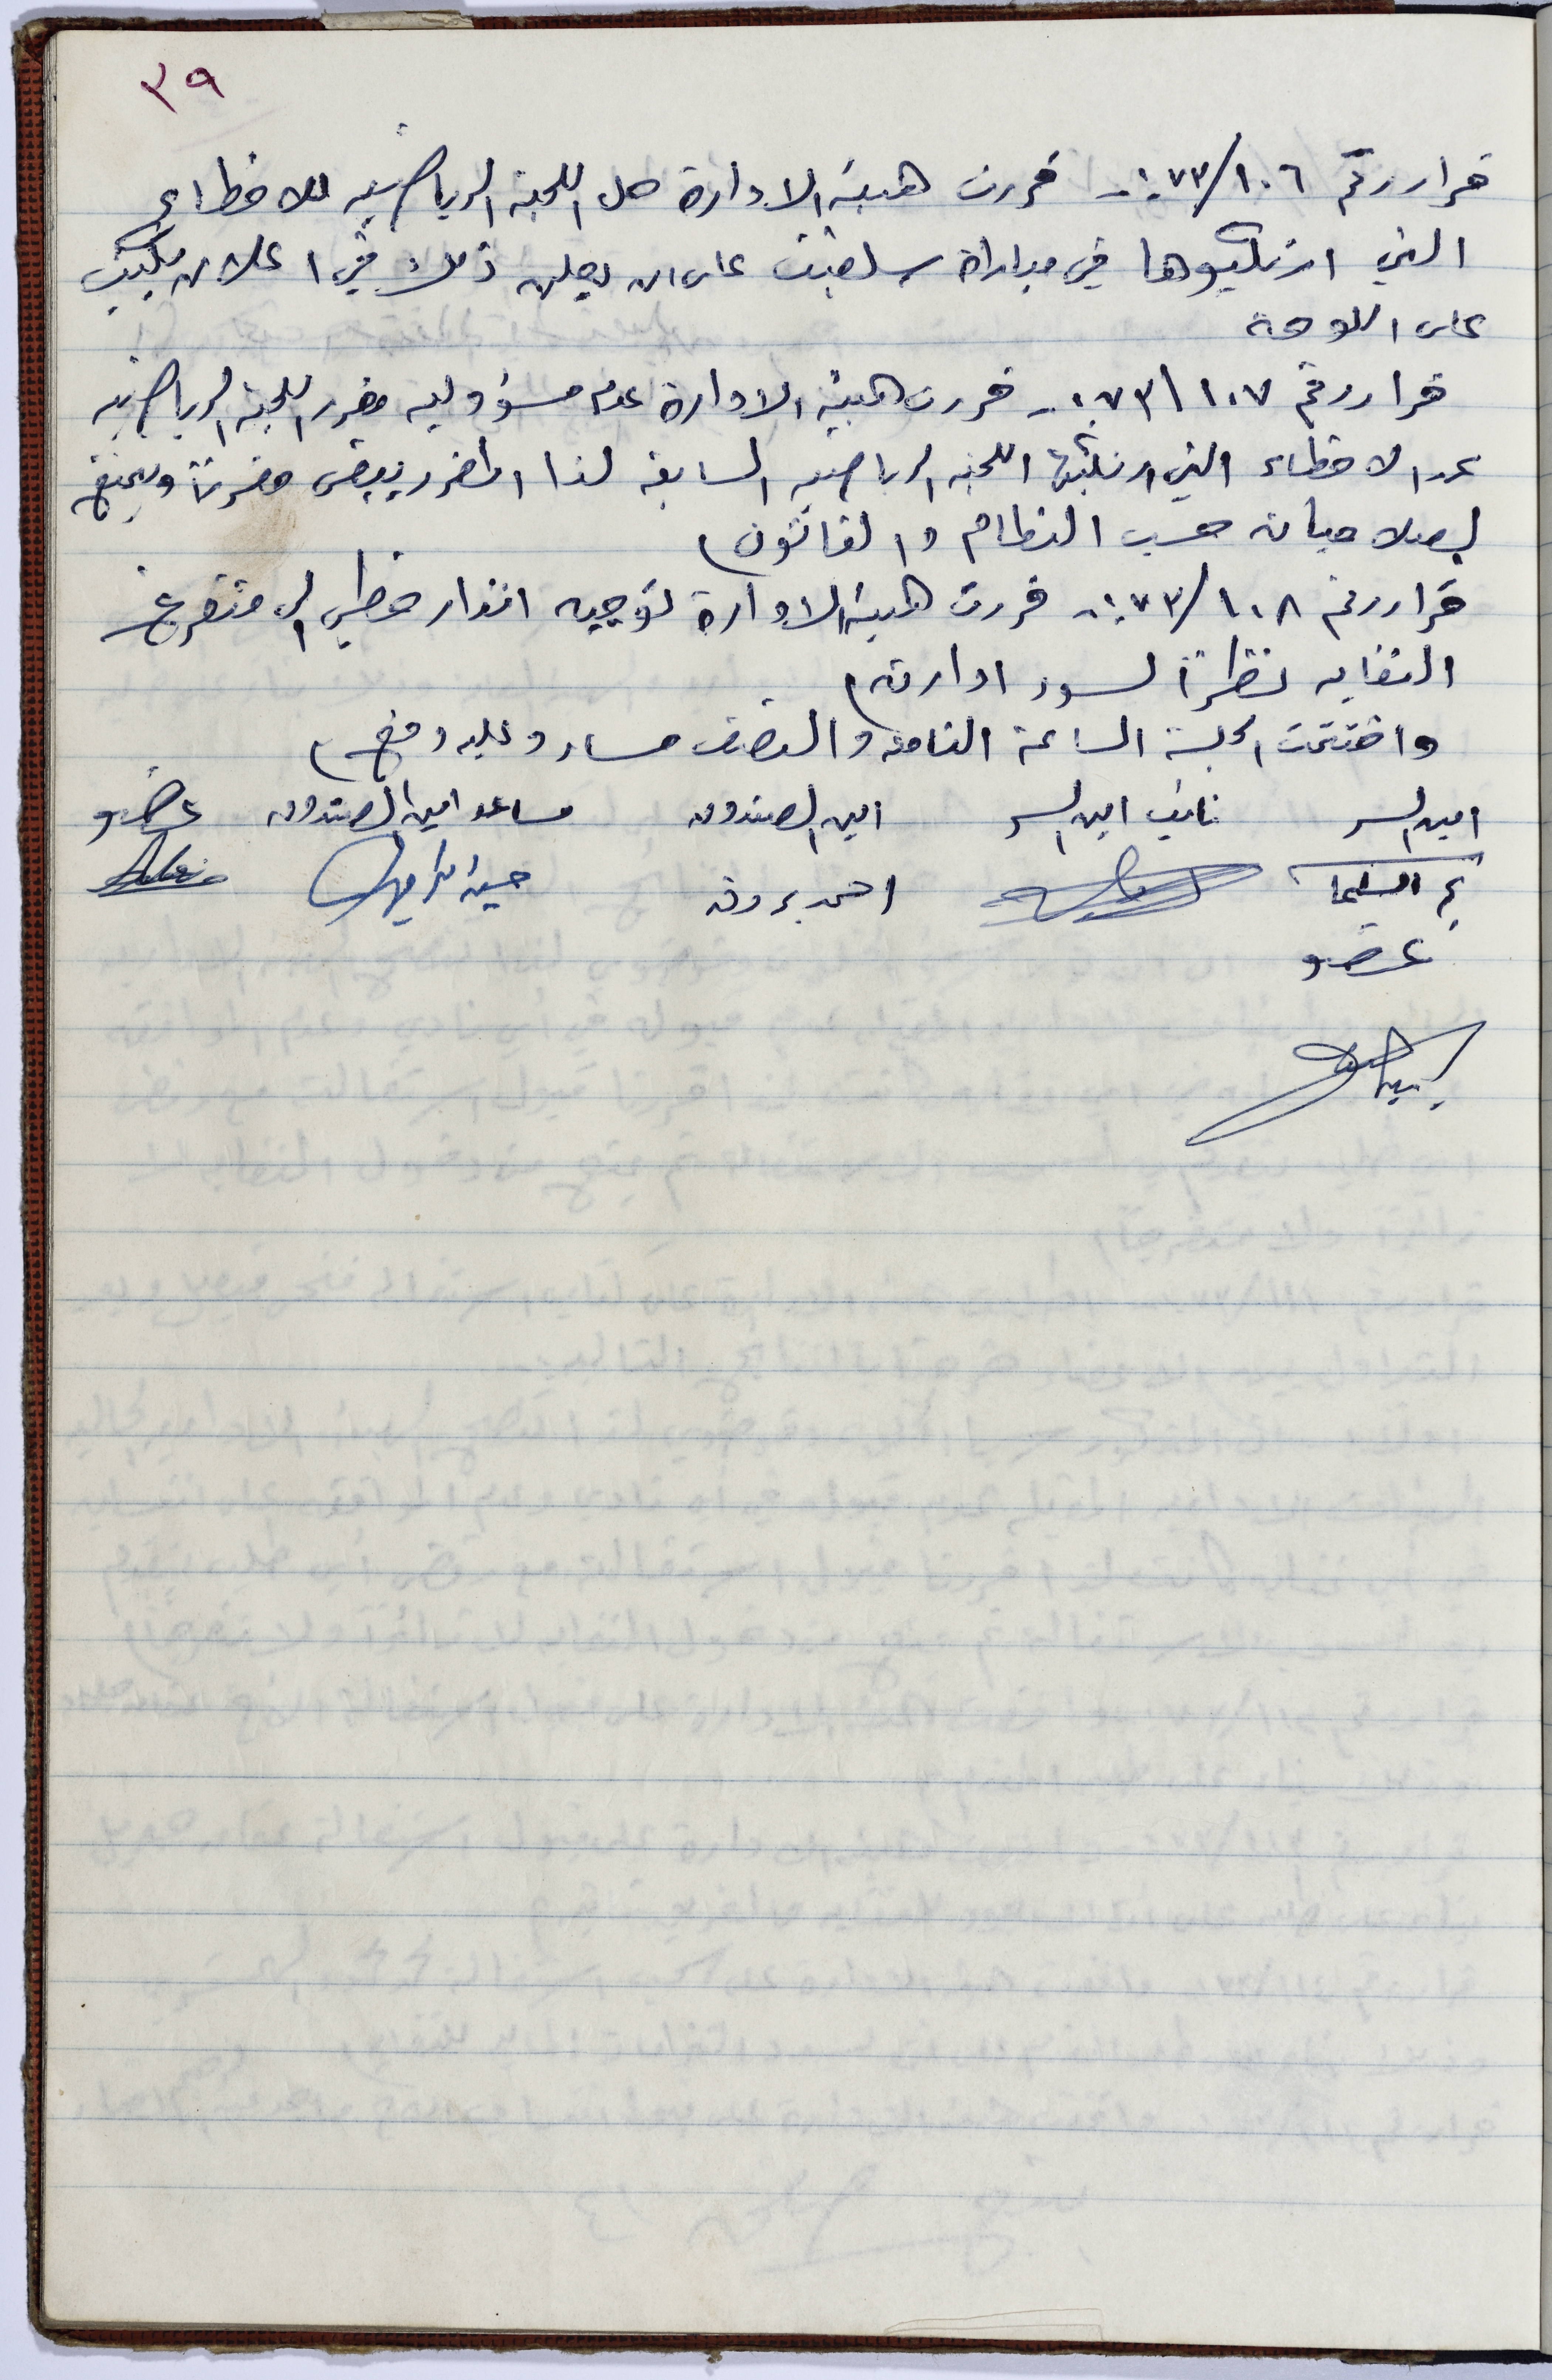 ٣٩
قرار رقم ٧٣/١٠٦ :- قررت هيئة الادارة حل اللجنة الرياضيه للاخطاء
التي ارتكبوها في مباراة سلفيت على ان يعلن ذلك في اعلان يكتب
على اللوحة
قرار رقم ٧٣/١٠٧ :- قررت هيئة الادارة عدم مسؤوليه مقرر اللجنه الرياضيه
عن الاخطاء التي ارتكبتها اللجنه الرياضيه السابقه لذا المقرر يبقى مقررًا ويتمتع
بصلاحياته حسب النظام والقانون)
قرار رقم ٧٣/١٠٨ :- قررت هيئة الادارة توجيه انذار خطي الى متفرغ
النقابه نظرًا لسوء ادارته)
واختتمت الجلسة الساعة الثامنه والنصف مساء وعليه نوقع)
امين السر نائب امين السر امين الصندوق مساعد امين الصندوق عضو
احمد حسين
عضو